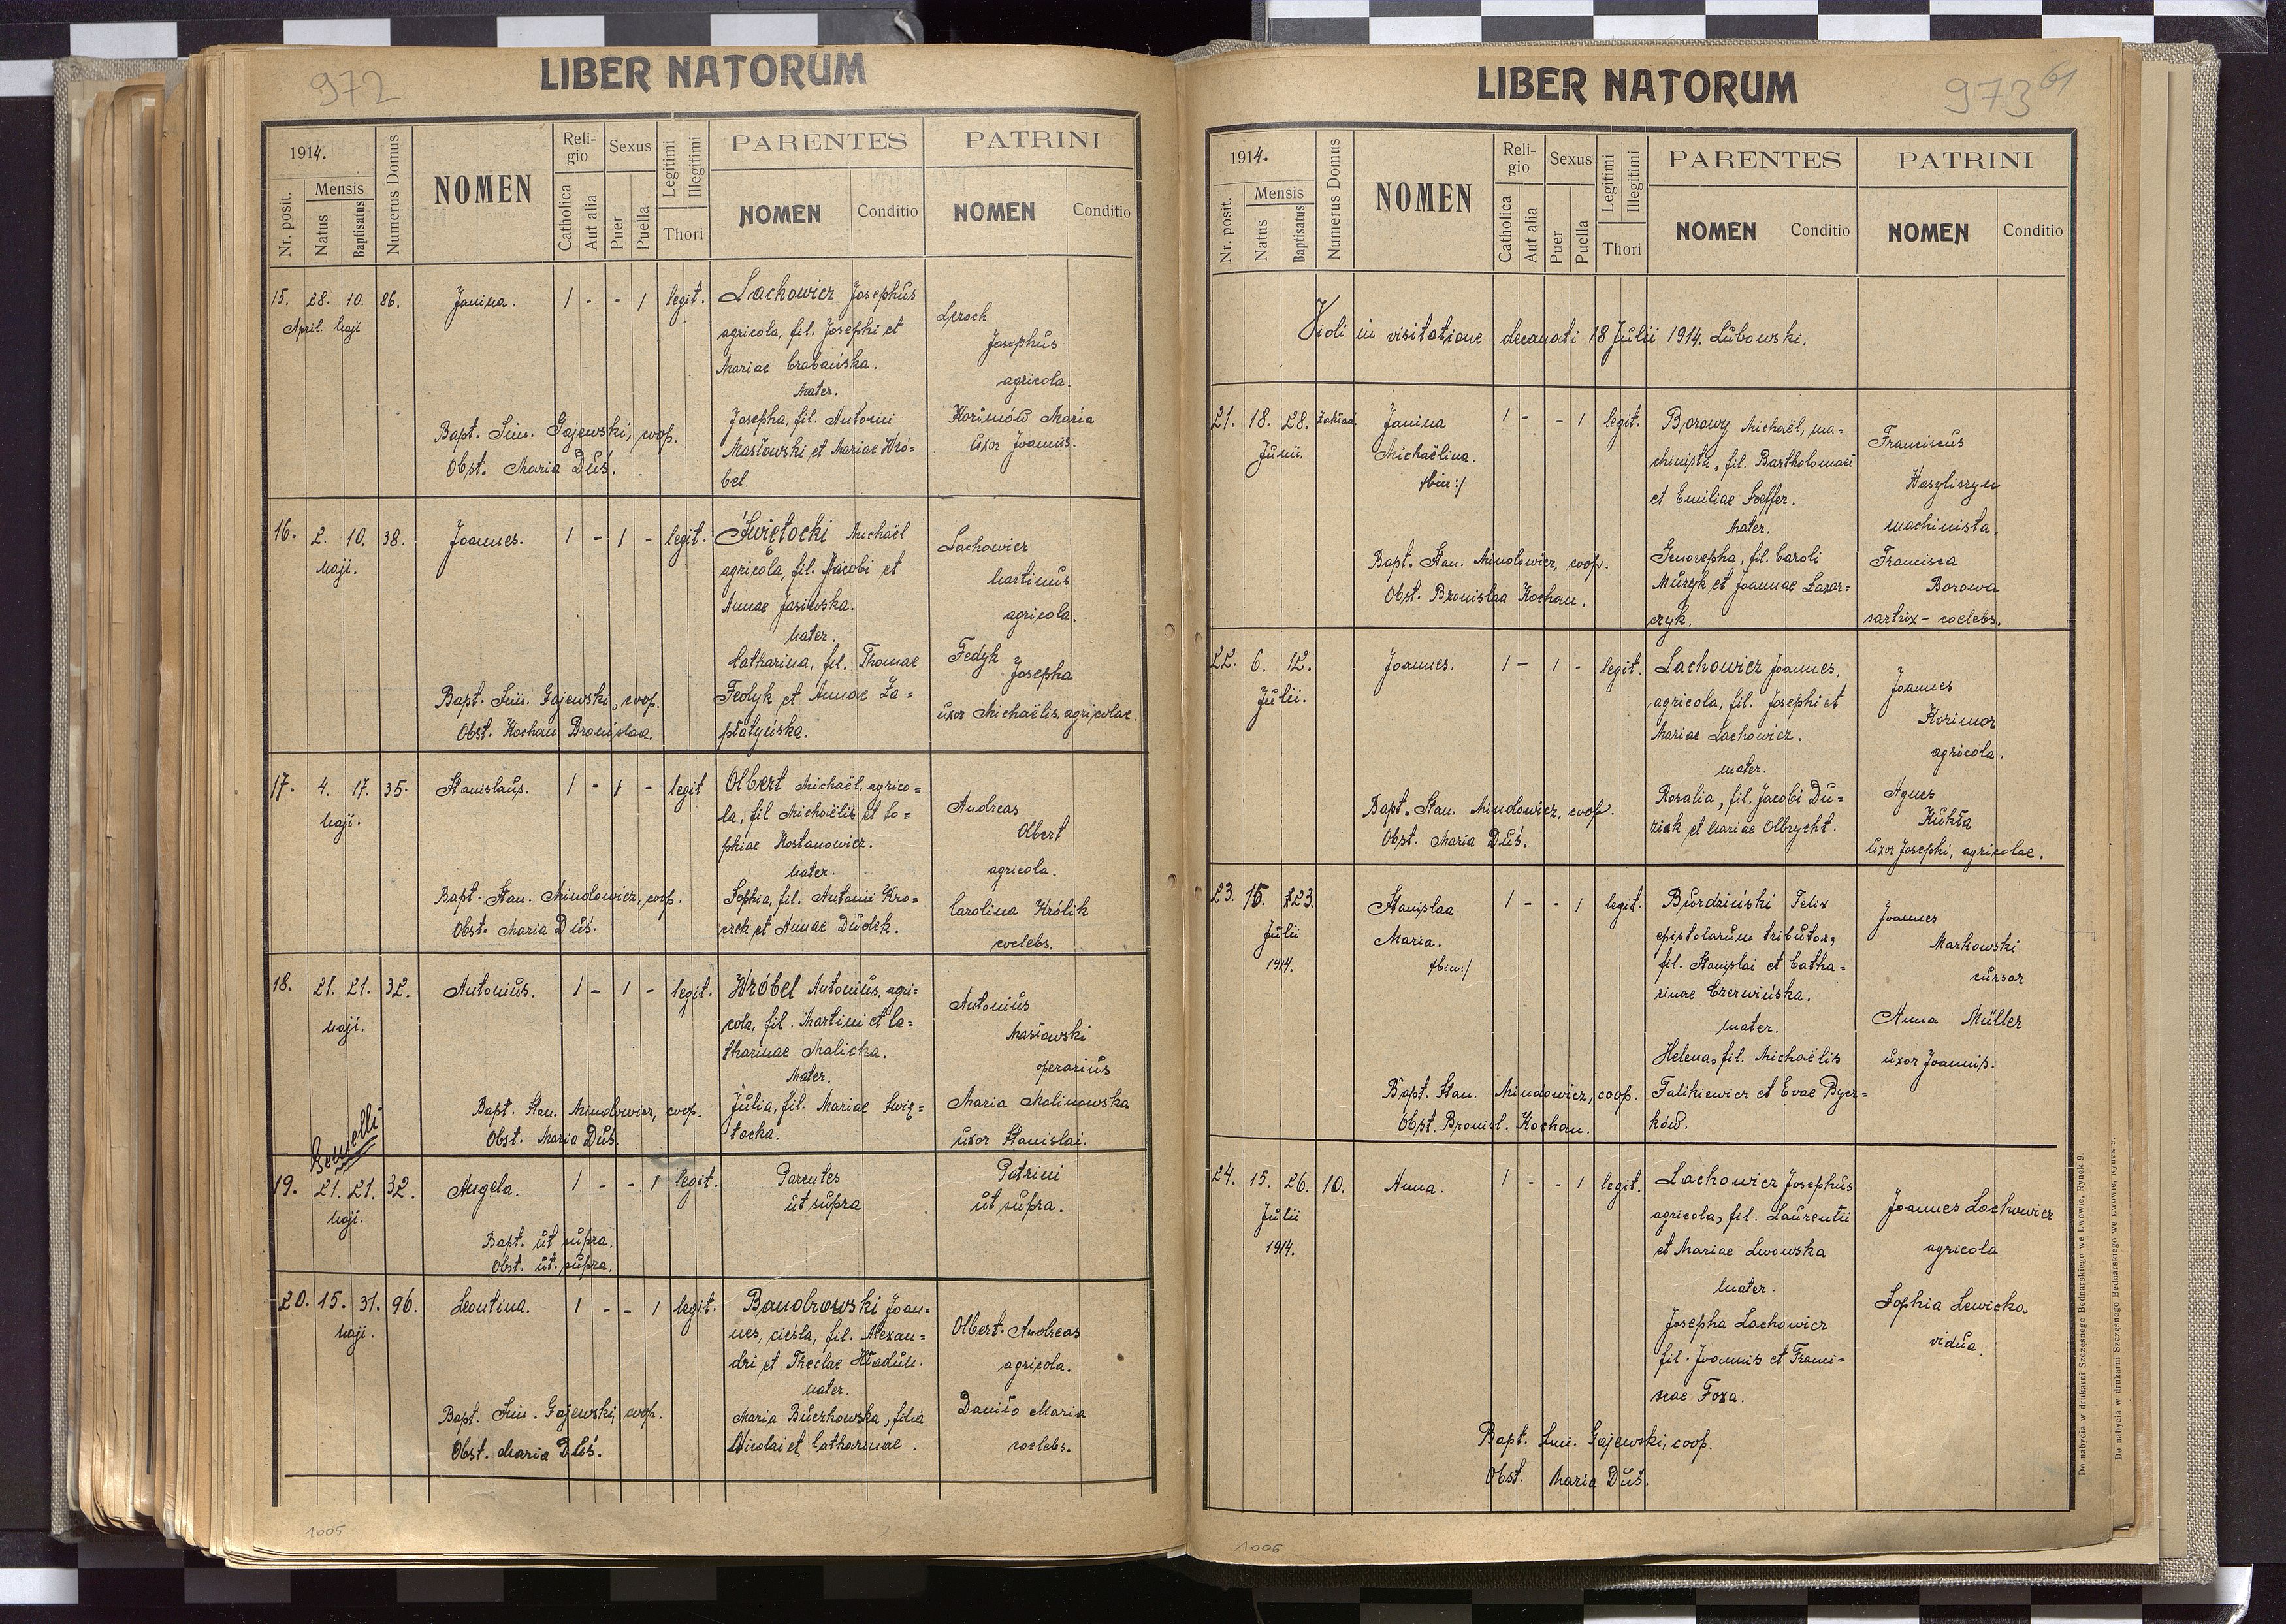 972
LIBER NATORUM
1914.
Nr. posit.
Mensis
Natus
Baptisatus
Numerus Domus
NOMEN
Religio
Catholica
Aut alia
Sexus
Puer
Puella
Legitimi
Illegitimi
Thori
PARENTES
NOMEN
Conditio
PATRINI
NOMEN
Conditio
15. 28. 10. 86. Janina. 1 - - 1 legit. Lachowicz Josephus
April. Maji
agricola, fil. Josephi et
Mariae Grabańska.
Mater.
Josepha, fil. Antonii
Masłowski et Mariae Wró=
bel.
Leroch
Josephus
agricola.
Korimów Maria
uxor Joannis.
Bapt. Sim. Gajewski, coop.
Obst. Maria Duś.
16. 2. 10. 38. Joannes. 1 - 1 - legit. Świętocki Michaël
Maji.
agricola, fil. Jacobi et
Annae Jasińska.
Mater.
Catharina, fil. Thomae
Fedyk et Annae Za=
płatyńska.
Lachowicz
Martinus
agricola.
Fedyk
Josepha
uxor Michaëlis, agricolae.
Bapt. Sim. Gajewski, coop.
Obst. Kochan Bronislaa.
17. 4. 17. 35. Stanislaus. 1 - 1 - legit Olbert Michaël, agrico=
Maji.
la, fil Michaëlis et So=
phiae Kostanowicz.
Mater.
Sophia, fil. Antonii Kro=
czek et Annae Dudek.
Andreas
Olbert
agricola.
Carolina Królik
coelebs.
Bapt. Stan. Mindowicz, coop.
Obst. Maria Duś.
18. 21. 21. 32. Antonius. 1 - 1 - legit. Wróbel Antonius, agri=
Maji.
cola, fil. Martini et Ca=
tharinae Malicka.
Mater.
Julia, fil. Mariae Swię=
tocka.
Antonius
Masłowski
operarius
Maria Malinowska
uxor Stanislai.
Bapt. Stan. Mindowicz, coop.
Obst. Maria Duś.
Gemelli
19. 21. 21. 32. Angela. 1 - - 1 legit. Parentes
Maji.
ut supra
Patrini
ut supra.
Bapt. ut supra.
Obst. ut supra.
20. 15. 31. 96. Leontina. 1 - - 1 legit. Bandrowski Joan=
Maji.
nes, cieśla, fil. Alexan=
dri et Theclae Hładun.
Mater.
Maria Buczkowska, filia
Nicolai et Catharinae.
Olbert Andreas
agricola.
Daniło Maria
coelebs.
Bapt. Sim. Gajewski, coop.
Obst. Maria Duś.
1005
973
61
LIBER NATORUM
1914.
Nr. posit.
Mensis
Natus
Baptisatus
Numerus Domus
NOMEN
Religio
Catholica
Aut alia
Sexus
Puer
Puella
Legitimi
Illegitimi
Thori
PARENTES
NOMEN
Conditio
PATRINI
NOMEN
Conditio
Vidi in visitatione decanati 18 Julii 1914. Lubowski.
21. 18. 28. Zakład. Janina 1 - - 1 legit. Borowy Michaël, ma=
Junii.
Michaëlina.
/bin:/
chinista, fil. Bartholomaei
et Emiliae Szeffer.
Mater.
Genovepha, fil. Caroli
Muzyk et Joannae Łazar=
czyk.
Franciscus
Wasyliszyn
machinista.
Francisca
Borowa
sartrix - coelebs.
Bapt. Stan. Mindowicz, coop.
Obst. Bronislaa Kochan.
22. 6. 12. Joannes. 1 - 1 - legit. Lachowicz Joannes,
Julii.
agricola, fil. Josephi et
Mariae Lachowicz.
Mater.
Rosalia, fil. Jacobi Du=
ziak et Mariae Olbrycht.
Joannes
Korimor
agricola.
Agnes
Kukła
uxor Josephi, agricolae.
Bapt. Stan. Mindowicz, coop.
Obst. Maria Duś.
23. 15. 23. Stanislaa 1 - - 1 legit. Burdziński Felix
Julii
1914.
Maria.
/bin:/
epistolarum tributor,
fil. Stanislai et Catha=
rinae Czerwińska.
Mater.
Helena, fil. Michaëlis
Falikiewicz et Evae Bycz=
ków.
Joannes
Markowski
cursor
Anna Müller
uxor Joannis.
Bapt. Stan. Mindowicz, coop.
Obst. Bronisl. Kochan.
24. 15. 26. 10. Anna. 1 - - 1 legit. Lachowicz Josephus
Julii
1914.
agricola, fil. Laurentii
et Mariae Lwowska
Mater.
Josepha Lachowicz
fil. Joannis et Franci=
scae Foxa.
Joannes Lachowicz
agricola
Sophia Lewicka
vidua.
Bapt. Sim. Gajewski, coop.
Obst. Maria Duś.
Do nabycia w drukarni Szczęsnego Bednarskiego we Lwowie, Rynek 9.
Do nabycia w drukarni Szczęsnego Bednarskiego we Lwowie, Rynek 9.
1006